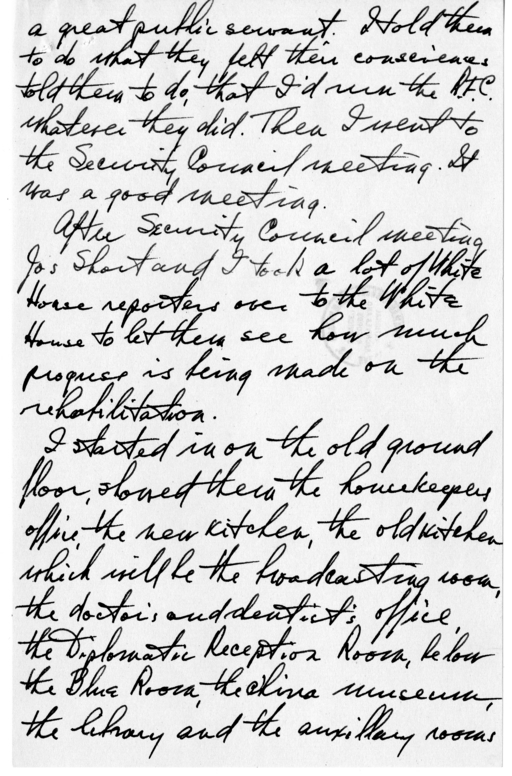 a great public servant. I told them
to do what they felt their consciences
told them to do, that I'd run the R.F.C.
whatever they did. Then I went to
the Security Council meeting. It
was a good meeting.
After Security Council meeting
Joe Short and I took a lot of White
House reporters over to the White
House to let them see how much
progress is being made on the
rehabilitation.
I started in on the old ground
floor, showed them the housekeepers
office, the new kitchen, the old kitchen
which will be the broadcasting room,
the doctor's and dentist's office,
the Diplomatic Reception Room, below
the Blue Room, the china museum,
the library and the auxillary rooms